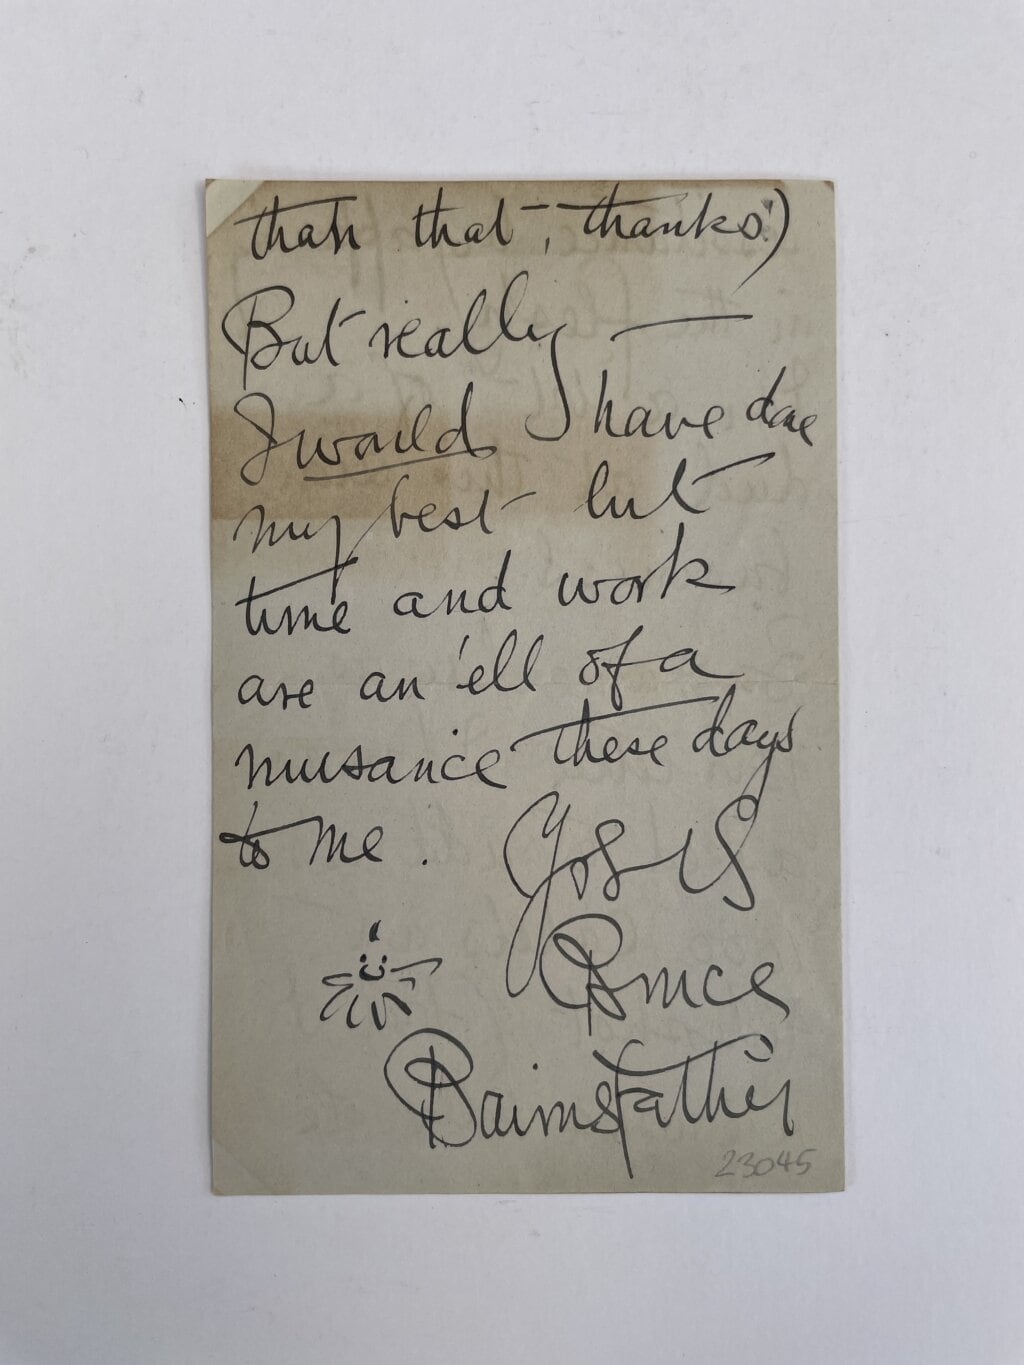 than that, thanks!)
But really —
I would have done
my best but
time and work
are an 'ell of a
nuisance these days
to me.
Yos
Bruce
Bairnsfather
23045